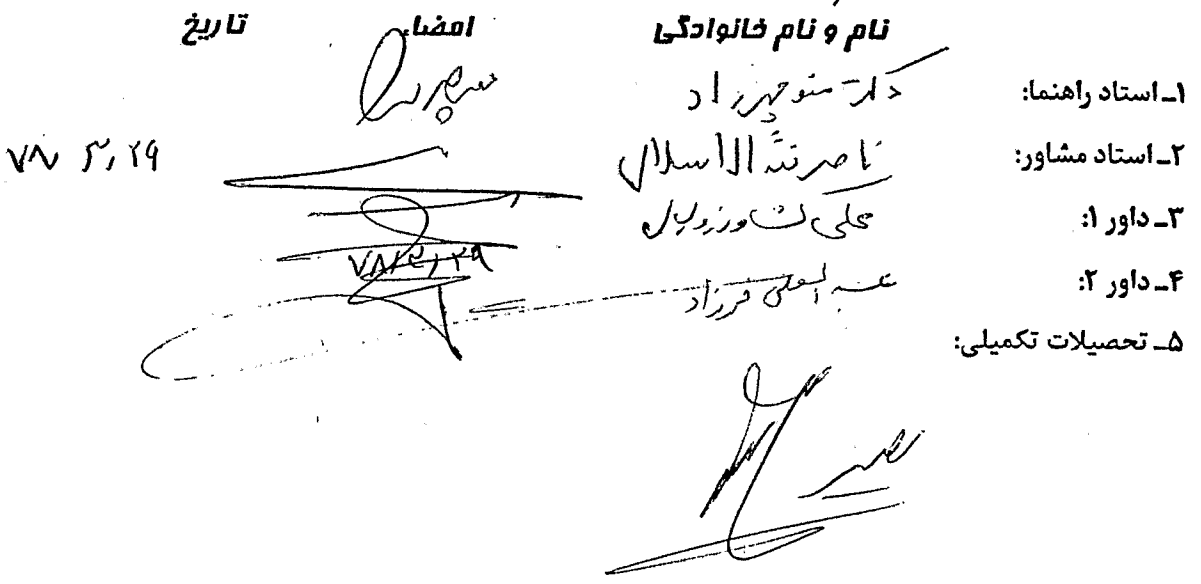 نام و نام خانوادگی امضاء تاریخ
۱ـ استاد راهنما: دکتر منوچهر راد
۲ـ استاد مشاور: ناصر ثقة الاسلامی ۷۸ ۳٫۲۹
۳ـ داور ۱: ۷۸٫۳٫۲۹
۴ـ داور ۲: فرزاد
۵ـ تحصیلات تکمیلی: